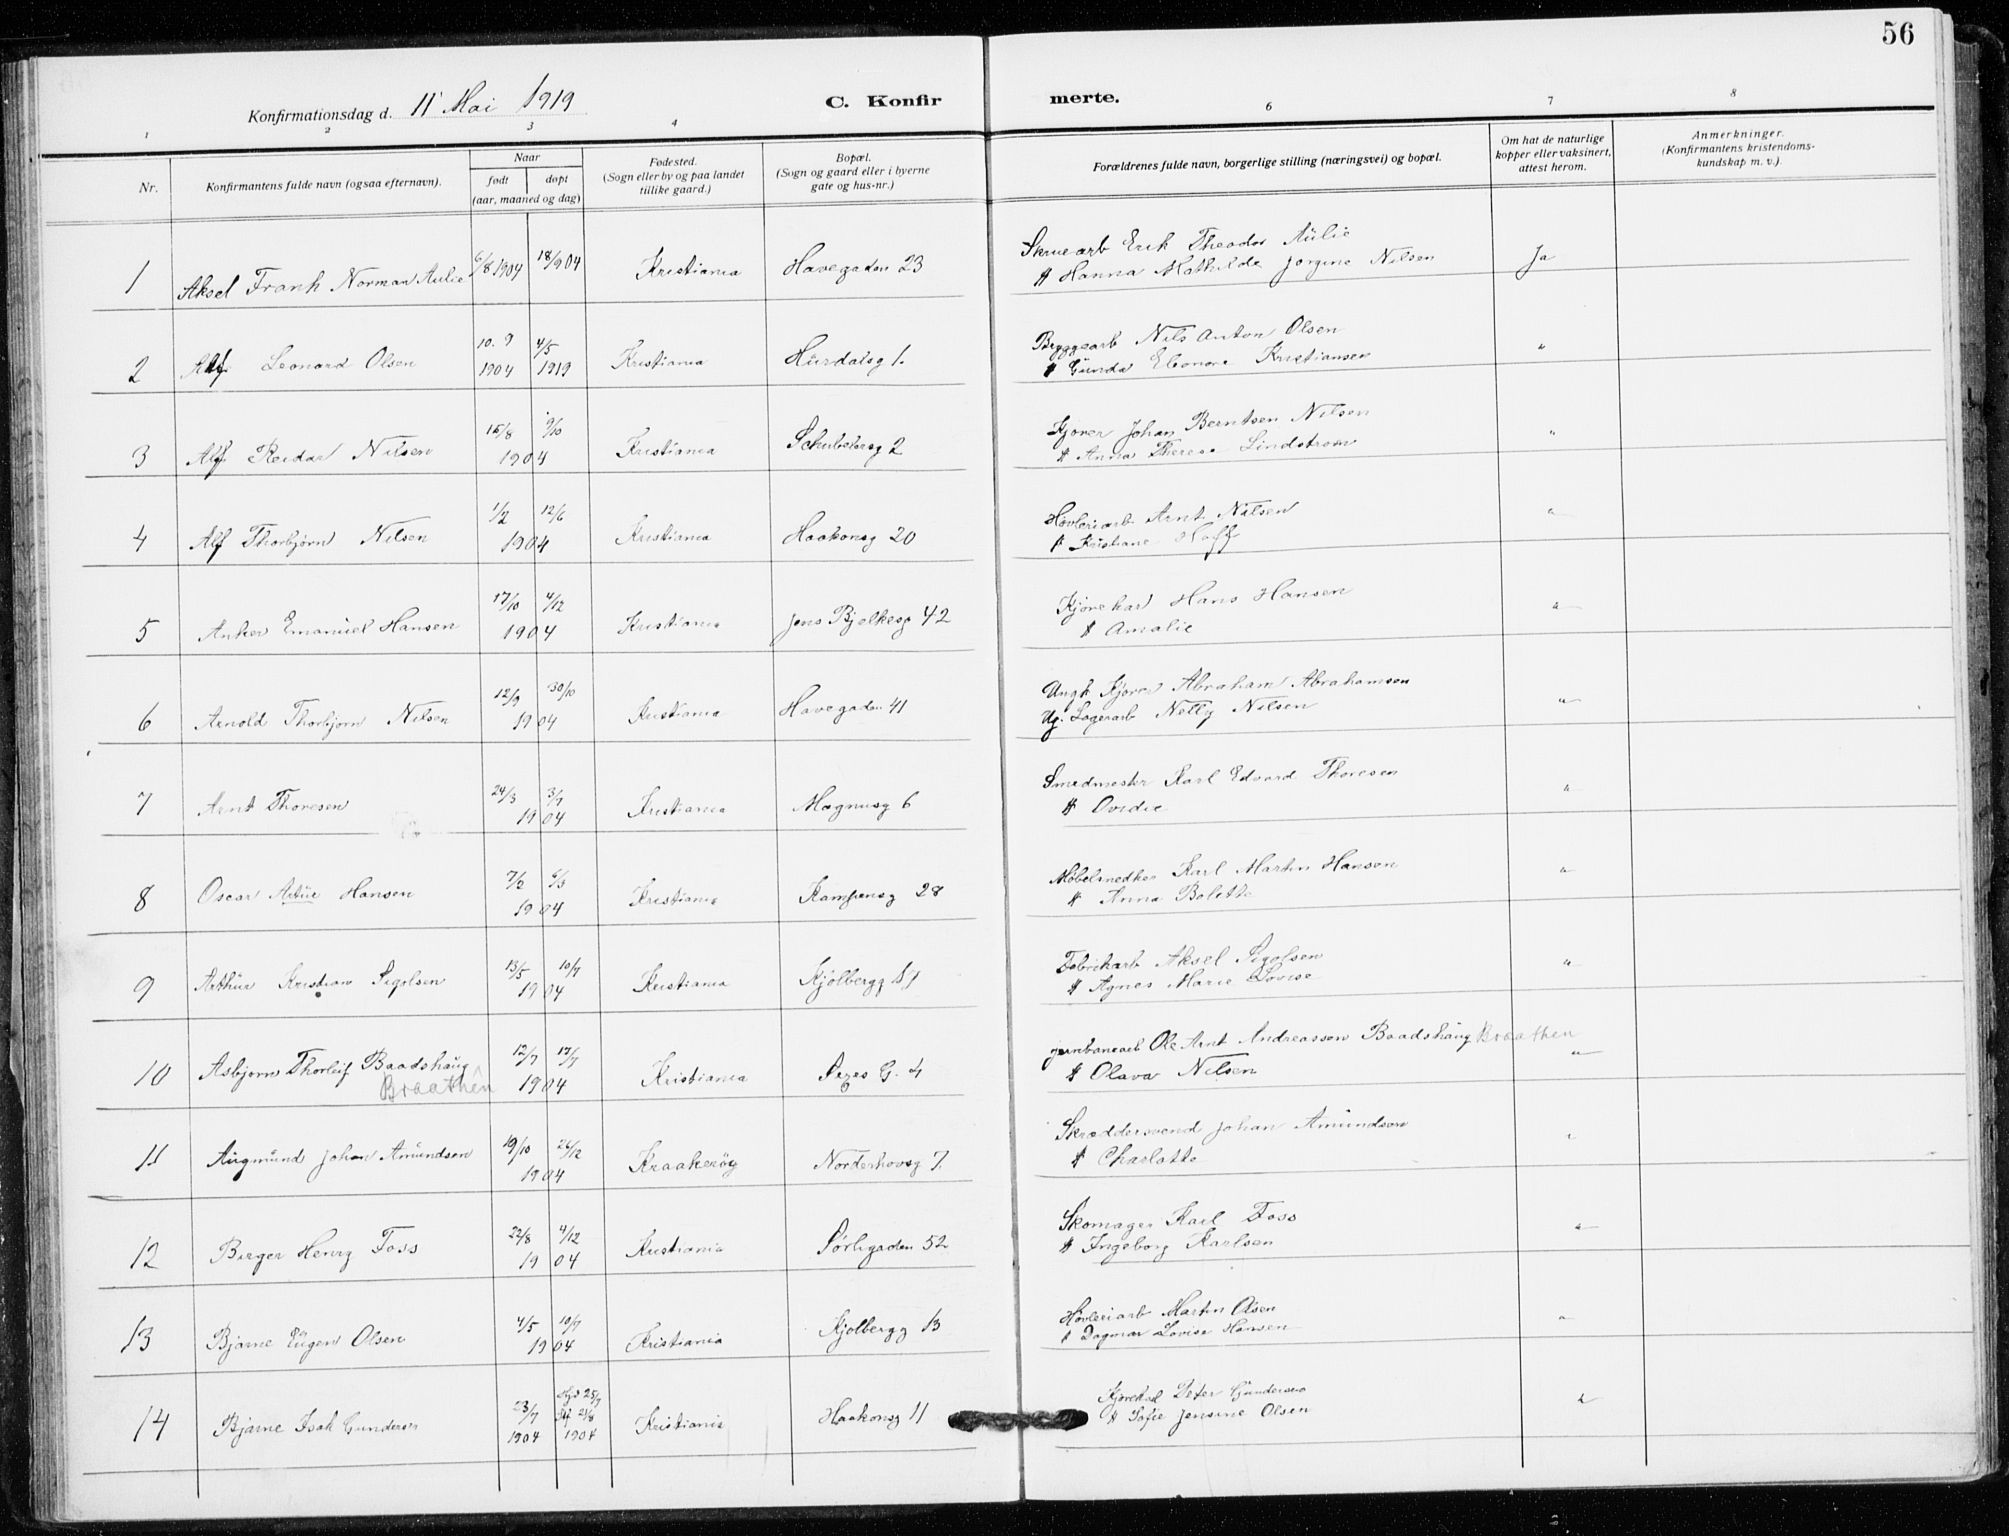 56
Konfirmationsdag d. 11' Mai 1919
C. Konfirmerte.
1 2 3 4 6 7 8
Nr.
Konfirmantens fulde navn (ogsaa efternavn).
Naar
født døpt
(aar, maaned og dag)
Fødested.
(Sogn eller by og paa landet
tillike gaard.)
Bopæl.
(Sogn og gaard eller i byerne
gate og hus-nr.)
Forældrenes fulde navn, borgerlige stilling (næringsvei) og bopæl.
Om hat de naturlige
kopper eller vaksinert,
attest herom.
Anmerkninger.
(Konfirmantens kristendoms-
kundskap m. v.).
1 Aksel Frank Norman Aulie 6/8 1904 18/9 04 Kristiania Havegaden 23
Skruearb Erik Theodor Aulie
H Hanna Mathilde Jorgine Nilsen Ja
2 Alf Leonard Olsen 10. 9 1904 4/5 1919 Kristiania Hurdalsg 1.
Bryggearb Nils Anton Olsen
H Gunda Eleonore Kristiansen "
3 Alf Reidar Nilsen 15/8 9/10 1904 Kristiania Schubelersg 2
Kjorer Johan Berntsen Nilsen
H Anna Therese Lindstrom "
4 Alf Thorbjørn Nilsen 1/2 12/6 1904 Kristiania Haakonsg 20
Høvleriarb Arnt Nilsen
H Kristiane Hoff "
5 Anker Emanuel Hansen 17/10 4/12 1904 Kristiania Jens Bjelkesg 42
Kjørekar Hans Hansen
H Amalie "
6 Arnold Thorbjorn Nilsen 12/9 30/10 1904 Kristiania Havegaden 41
Ungk Kjorer Abraham Abrahamsen
Ug. Lagerarb Nelly Nilsen "
7 Arnt Thoresen 24/3 3/7 1904 Kristiania Magnusg 6
Smedmester Karl Edvard Thoresen
H Ovidie "
8 Oscar Artur Hansen 7/2 6/3 1904 Kristiania Kampensg 28
Møbelsnedker Karl Martin Hansen
H Anna Bolette "
9 Arthur Kristian Sigolsen 13/5 10/7 1904 Kristiania Kjølbergg
Fabrikarb Aksel Sigolsen
H Agnes Marie Lovise "
10 Asbjorn Thorleif Baadshaug 12/7 17/7 1904 Kristiania G. 4
Braathen
Jernbanearb Ole Arnt Andreassen Baadshaug Braathen
H Olava Nilsen "
11 Augmund Johan Amundsen 19/10 26/12 1904 Kraakerøy Norderhovsg 7.
Skræddersvend Johan Amundsen
H Charlotte "
12 Birger Henry Foss 22/8 4/12 1904 Kristiania Sørligaden 52
Skomager Karl Foss
H Ingeborg Karlsen "
13 Bjarne Eugen Olsen 4/5 10/7 1904 Kristiania Kjolbergg 13
Høvleriarb Martin Olsen
H Dagmar Lovise Hansen "
14 Bjarne Isak Gundersen 23/7 1904 Hjd 25/7 Stf 21/8 1904 Kristiania Haakonsg 11
Kjørekar Peter Gundersen
H Sofie Jensine Olsen "